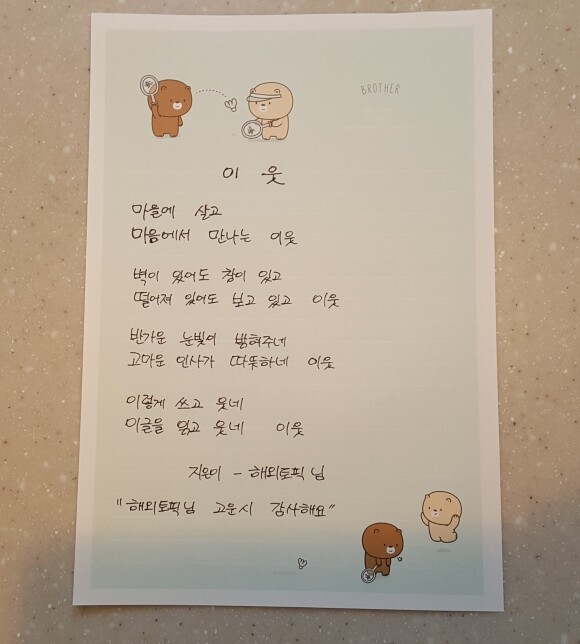 BROTHER
이 웃
마을에 살고
마음에서 만나는 이웃
벽이 있어도 창이 있고
떨어져 있어도 보고 있고 이웃
반가운 눈빛이 밝혀주네
고마운 인사가 따뜻하네 이웃
이렇게 쓰고 웃네
이글을 읽고 웃네 이웃
지은이 - 해외토픽 님
"해외토픽님 고운시 감사해요"